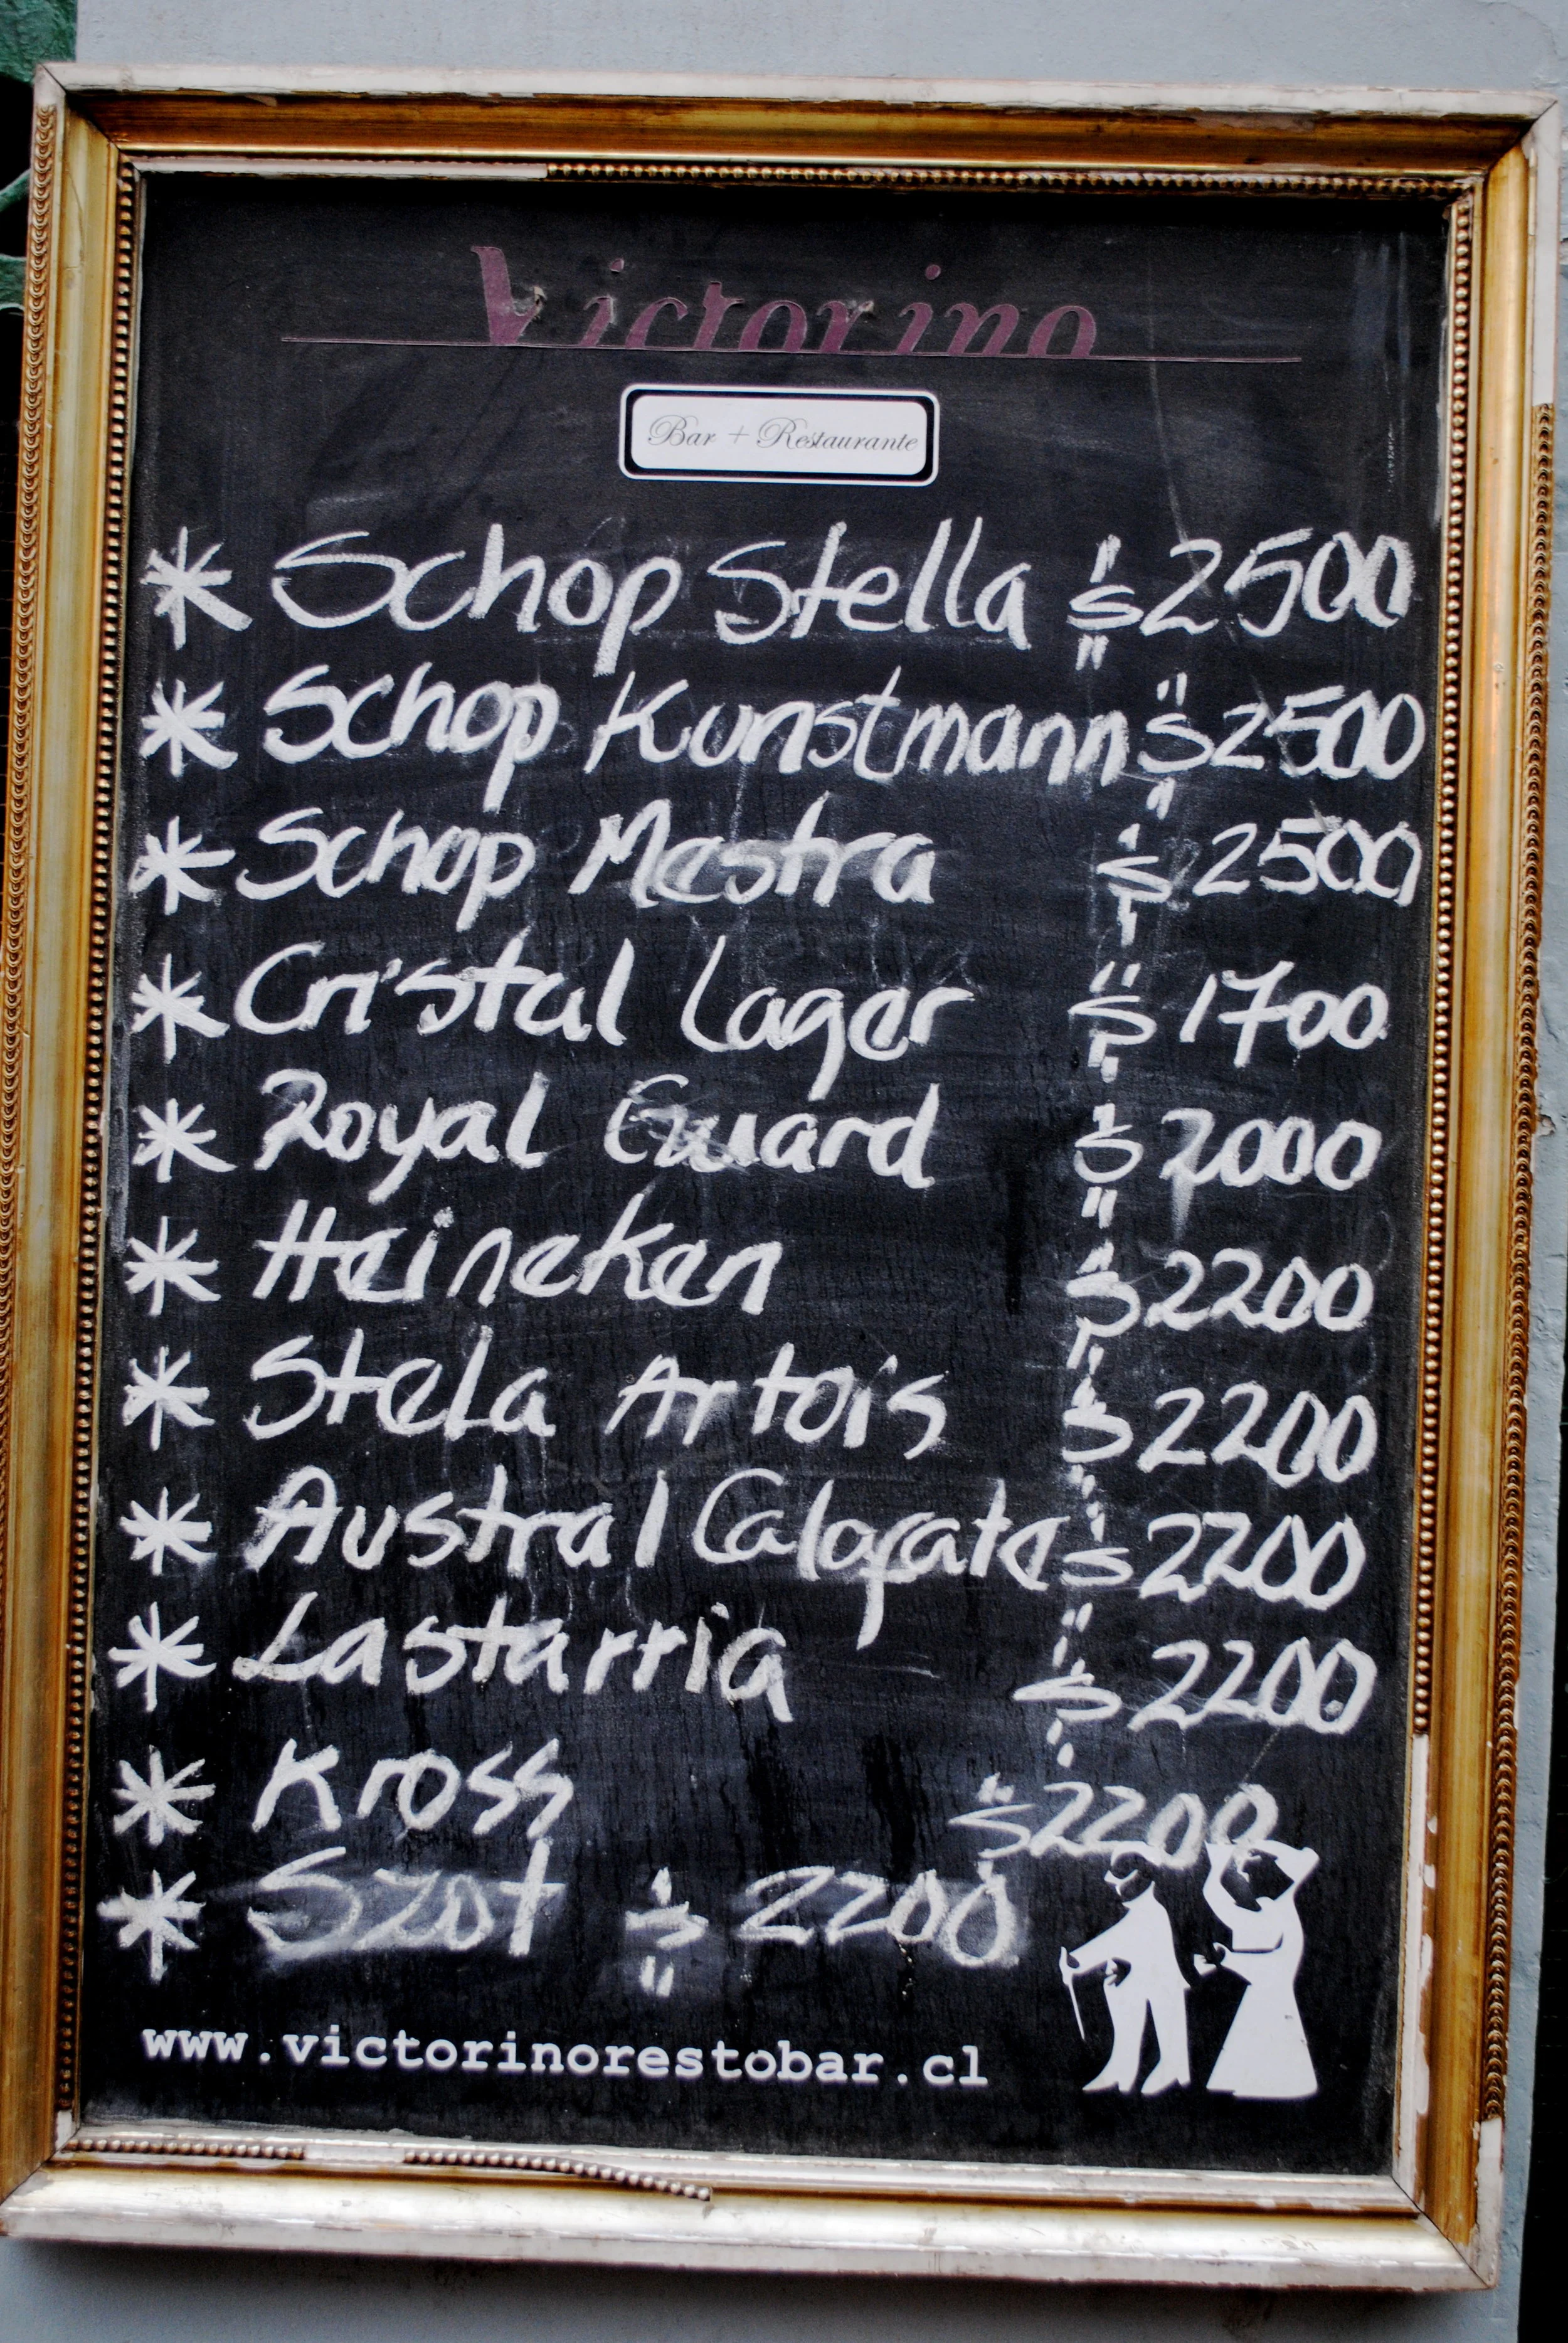 Victorino
Bar + Restaurante
* Schop Stella $2500
* Schop Kunstmann $2500
* Schop Mestra $2500
* Cristal Lager $1700
* Royal Guard $2000
* Heineken $2200
* Stela Artois $2200
* Austral Calafate $2200
* Lastarria $2200
* Kross $2200
* Szot $2200
www.victorinorestobar.cl